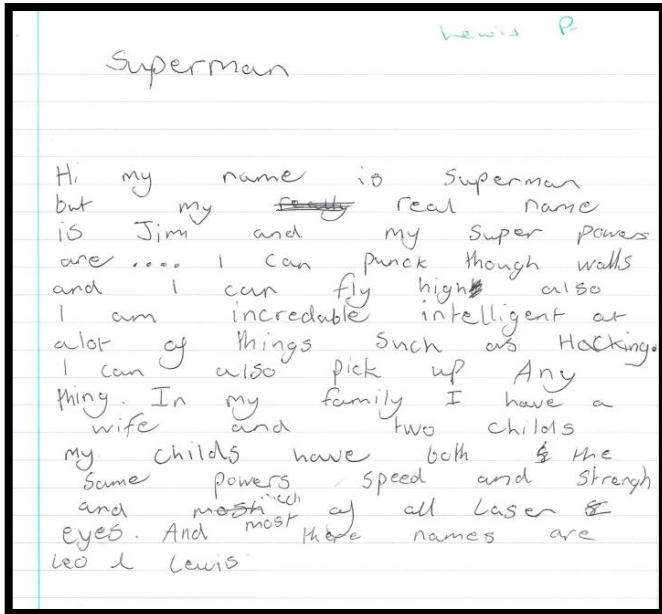 Lewis P
Superman
Hi my name is Superman
but my real name
is Jim and my super powers
are .... I can punck though walls
and I can fly high also
I am incredable intelligent at
alot of things such as Hacking.
I can also pick up Any
thing. In my family I have a
wife and two childs
my childs have both the
same powers speed and strengh
and most of all Laser
eyes. And there names are
Leo & Lewis